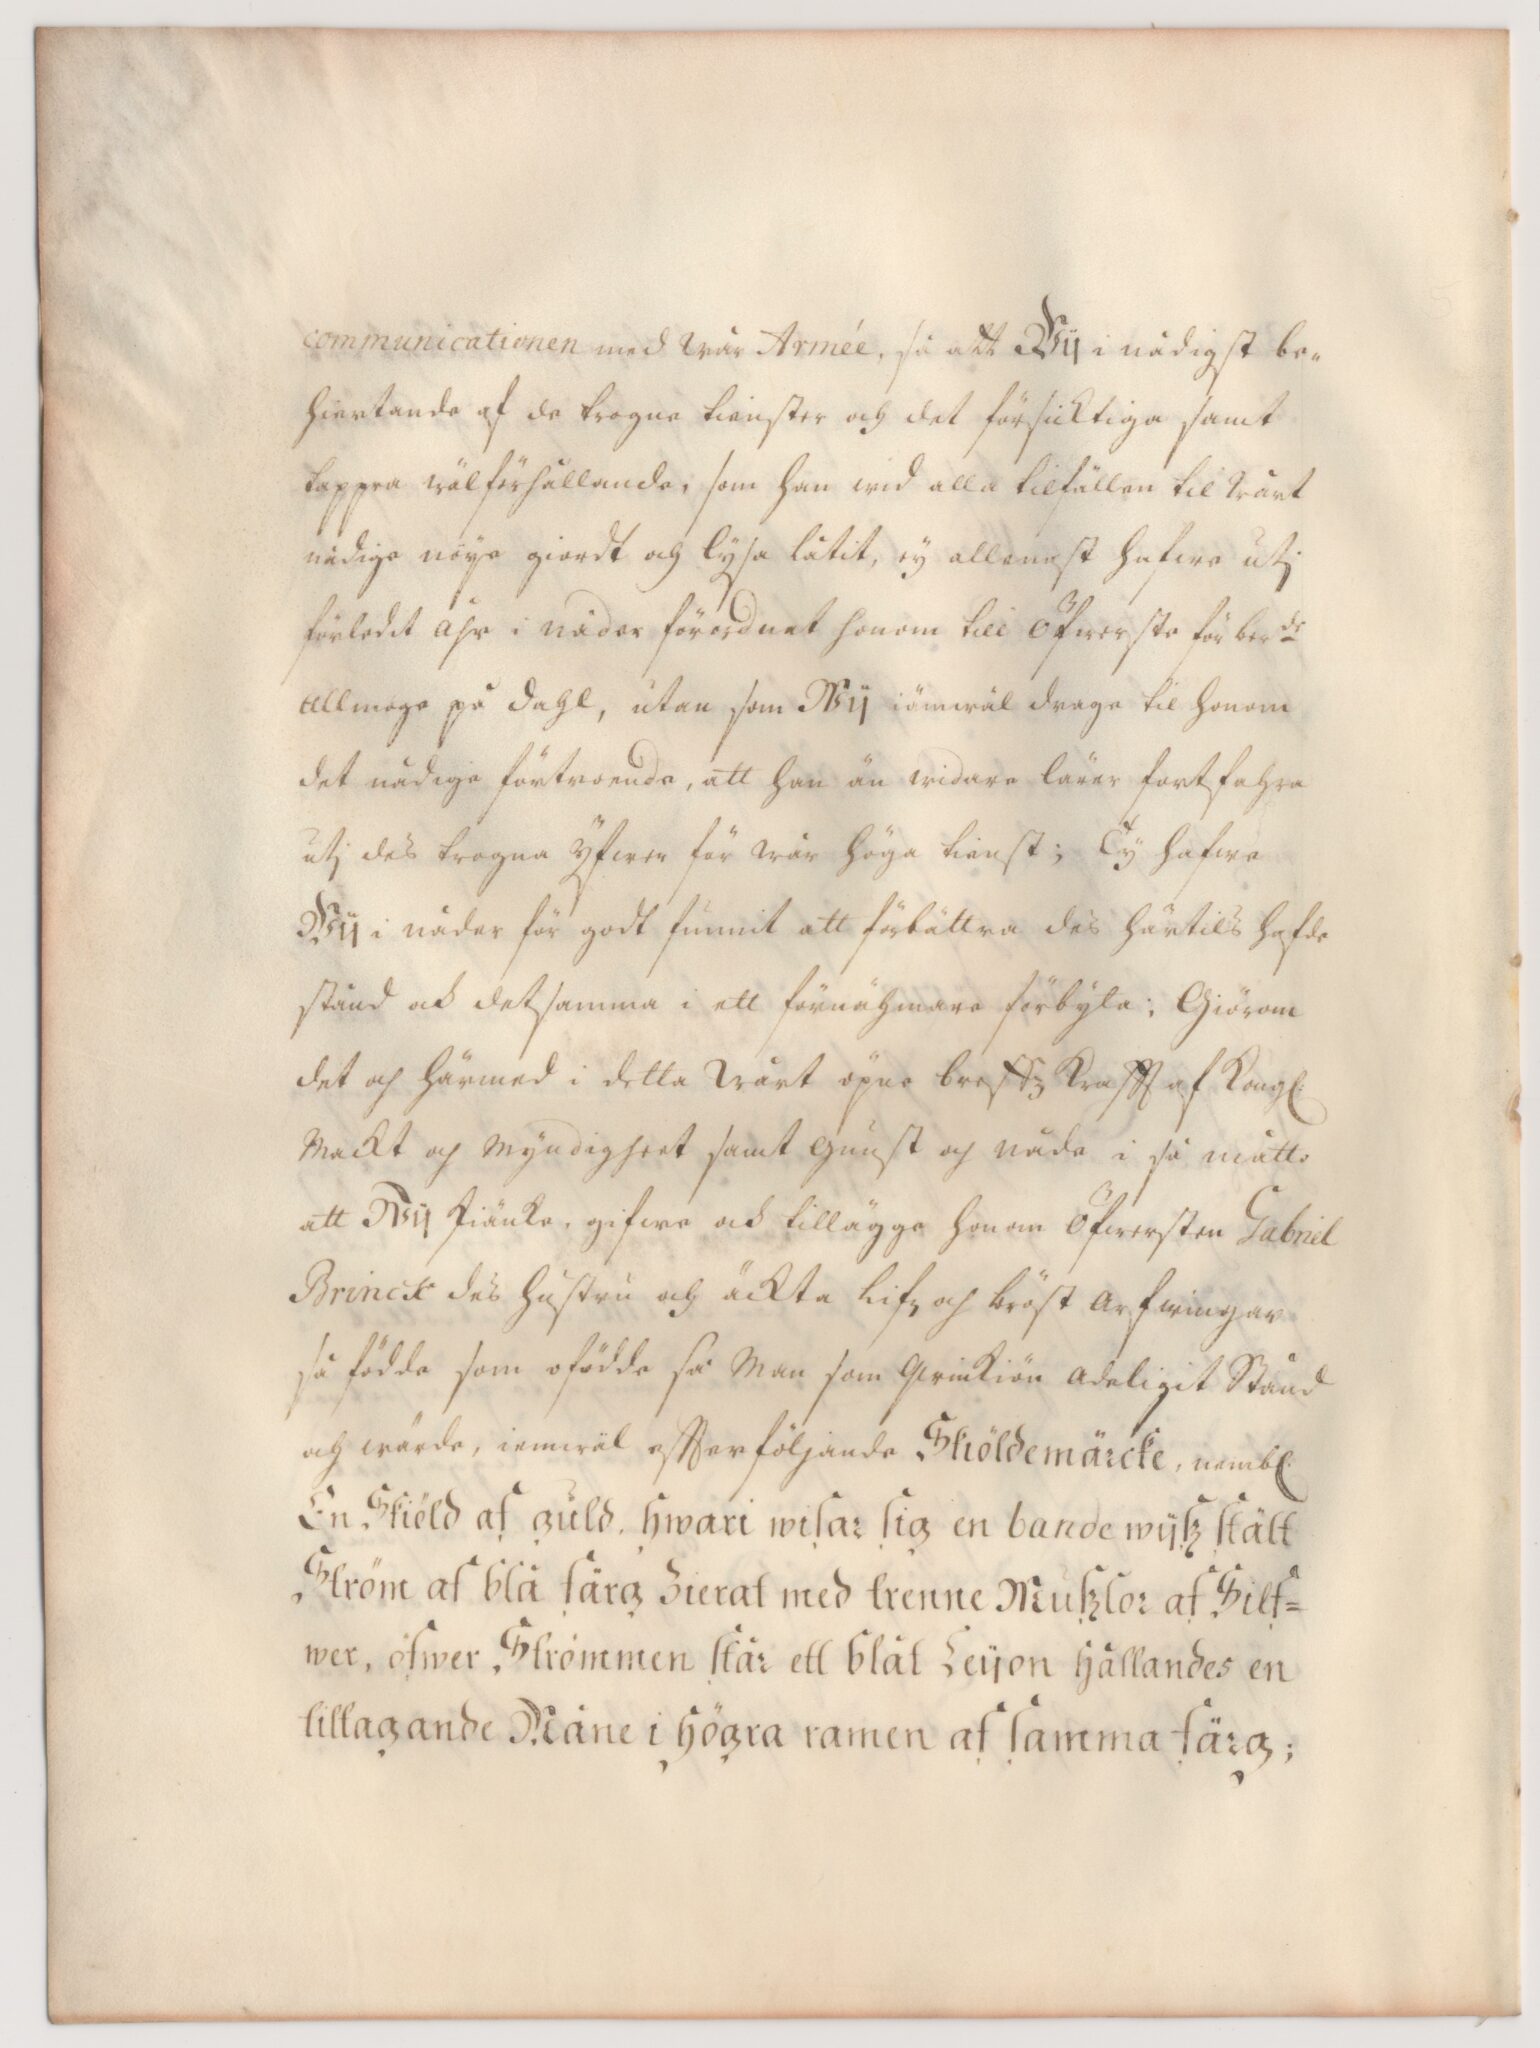 communicationen med wår Armée, så att Wij i nådigst be-
hiertande af de trogne tienster och det försicktiga samt
tappra wälförhållande, som han wid alla tilfällen til Wårt
nådige nöye giordt och lysa låtit, ey allenast hafwe utj
förledit åhr i nåder förordnat honom till Öfwerste för ber:de
Allmoge på Dahl, utan som Wij iämwäl drage til honom
det nådige förtroende, att han än widare lärer fortfahra
utj des trogna Yfwer för wår höga tienst; Ty hafwe
Wij i nåder för godt funnit att förbättra des härtils hafde
stånd ock detsamma i ett förnähmare förbyta; Giörom
det och härmed i detta Wårt öpne bref och Krafft af Kongl:
Mackt och Myndigheet samt gunst och nåde i så måtto
att Wij skiäncke, gifwe ock tillägge honom Öfwersten Gabriel
Brinck des hustru och äckta lifz och bröst Arfwingar
så födde som ofödde så Man som Qwinkiön Adeligit Stånd
och wärde, iemwäl effterföljande Skiöldemärcke, nembl:
En Skiöld af guld, hwari wisar sig en bande wijsz stält
Ström af blå färg Zierat med trenne Muszlor af Silf=
wer, öfwer Strömmen står ett blåt Leijon hållandes en
tillagande Måne i högra ramen af samma färg;